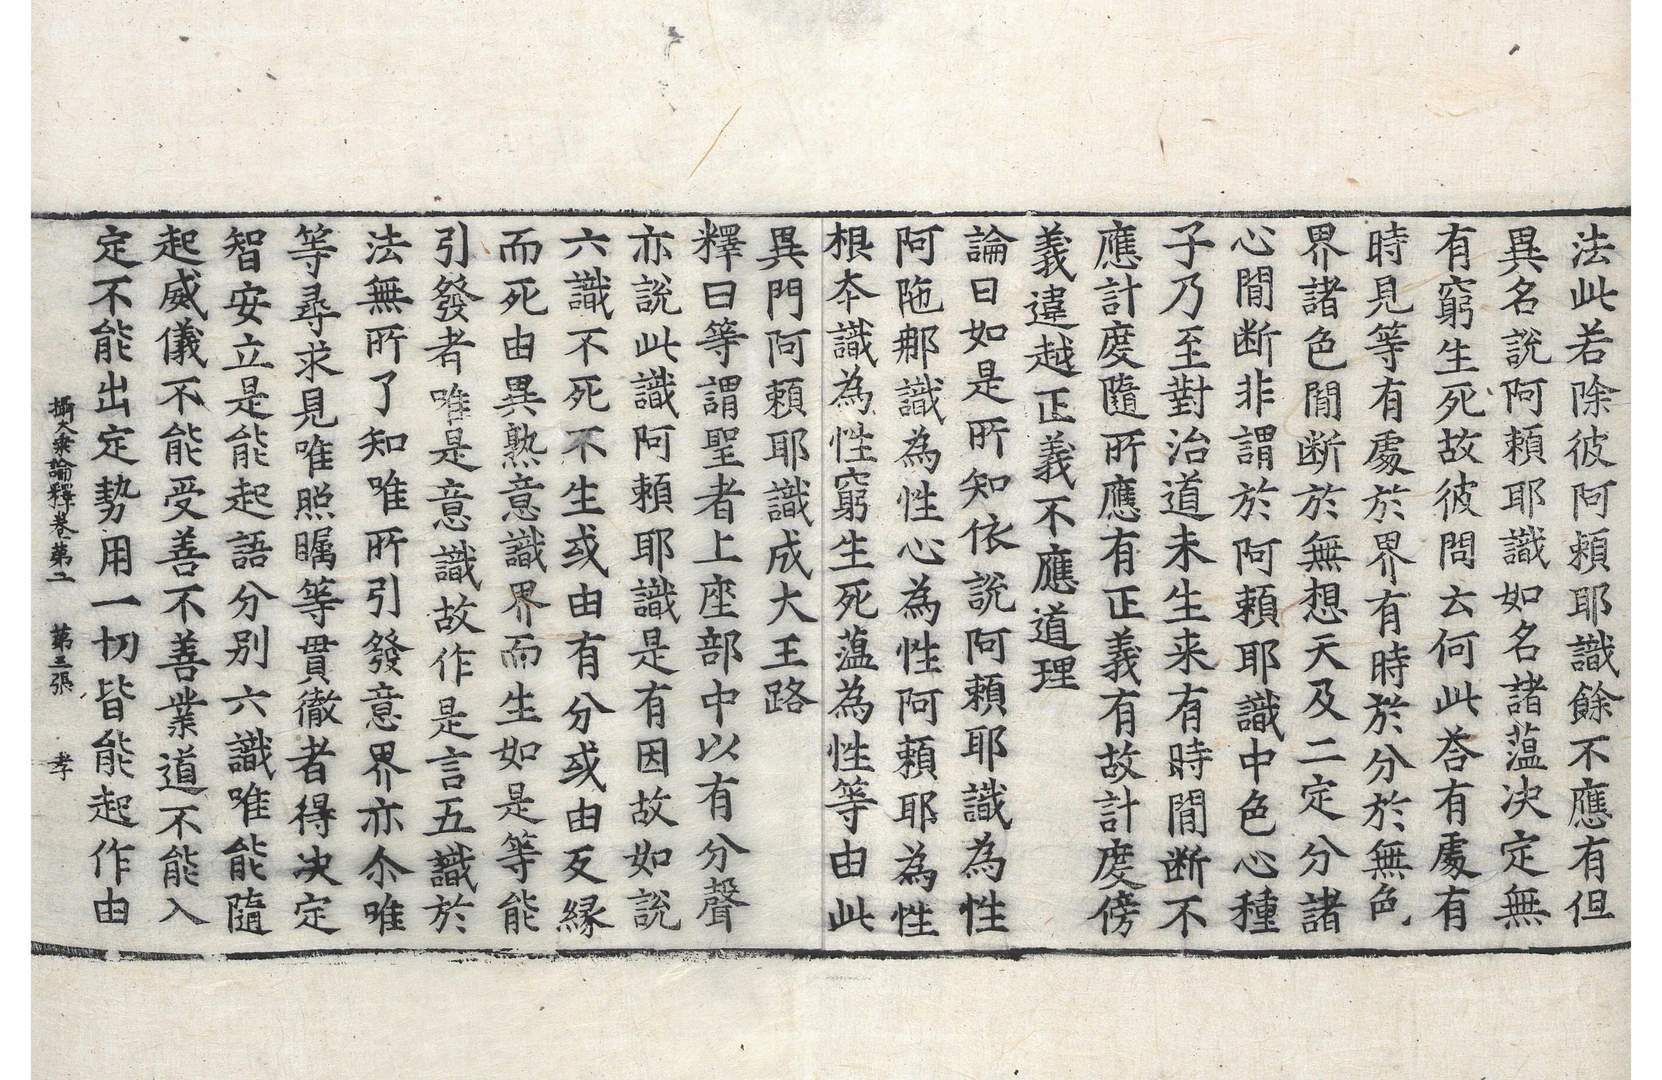 法此若除彼阿頼耶識餘不應有但
異名說阿頼耶識如名諸薀决定無
有窮生死故彼問云何此荅有處有
時見等有處於界有時於分於無色
界諸色閒断於無想天及二定分諸
心閒断非謂於阿頼耶識中色心種
子乃至對治道未生来有時閒断不
應計度隨所應有正義有故計度傍
義違越正義不應道理
論曰如是所知依說阿頼耶識為性
阿陁那識為性心為性阿頼耶為性
根本識為性窮生死薀為性等由此
異門阿頼耶識成大王路
釋曰等謂聖者上座部中以有分聲
亦說此識阿頼耶識是有因故如說
六識不死不生或由有分或由反縁
而死由異熟意識界而生如是等能
引發者唯是意識故作是言五識於
法無所了知唯所引發意界亦尒唯
等尋求見唯照矚等貫徹者得决定
智安立是能起語分别六識唯能隨
起威儀不能受善不善業道不能入
定不能出定勢用一切皆能起作由
攝大乗論釋卷第二 第三張 孝